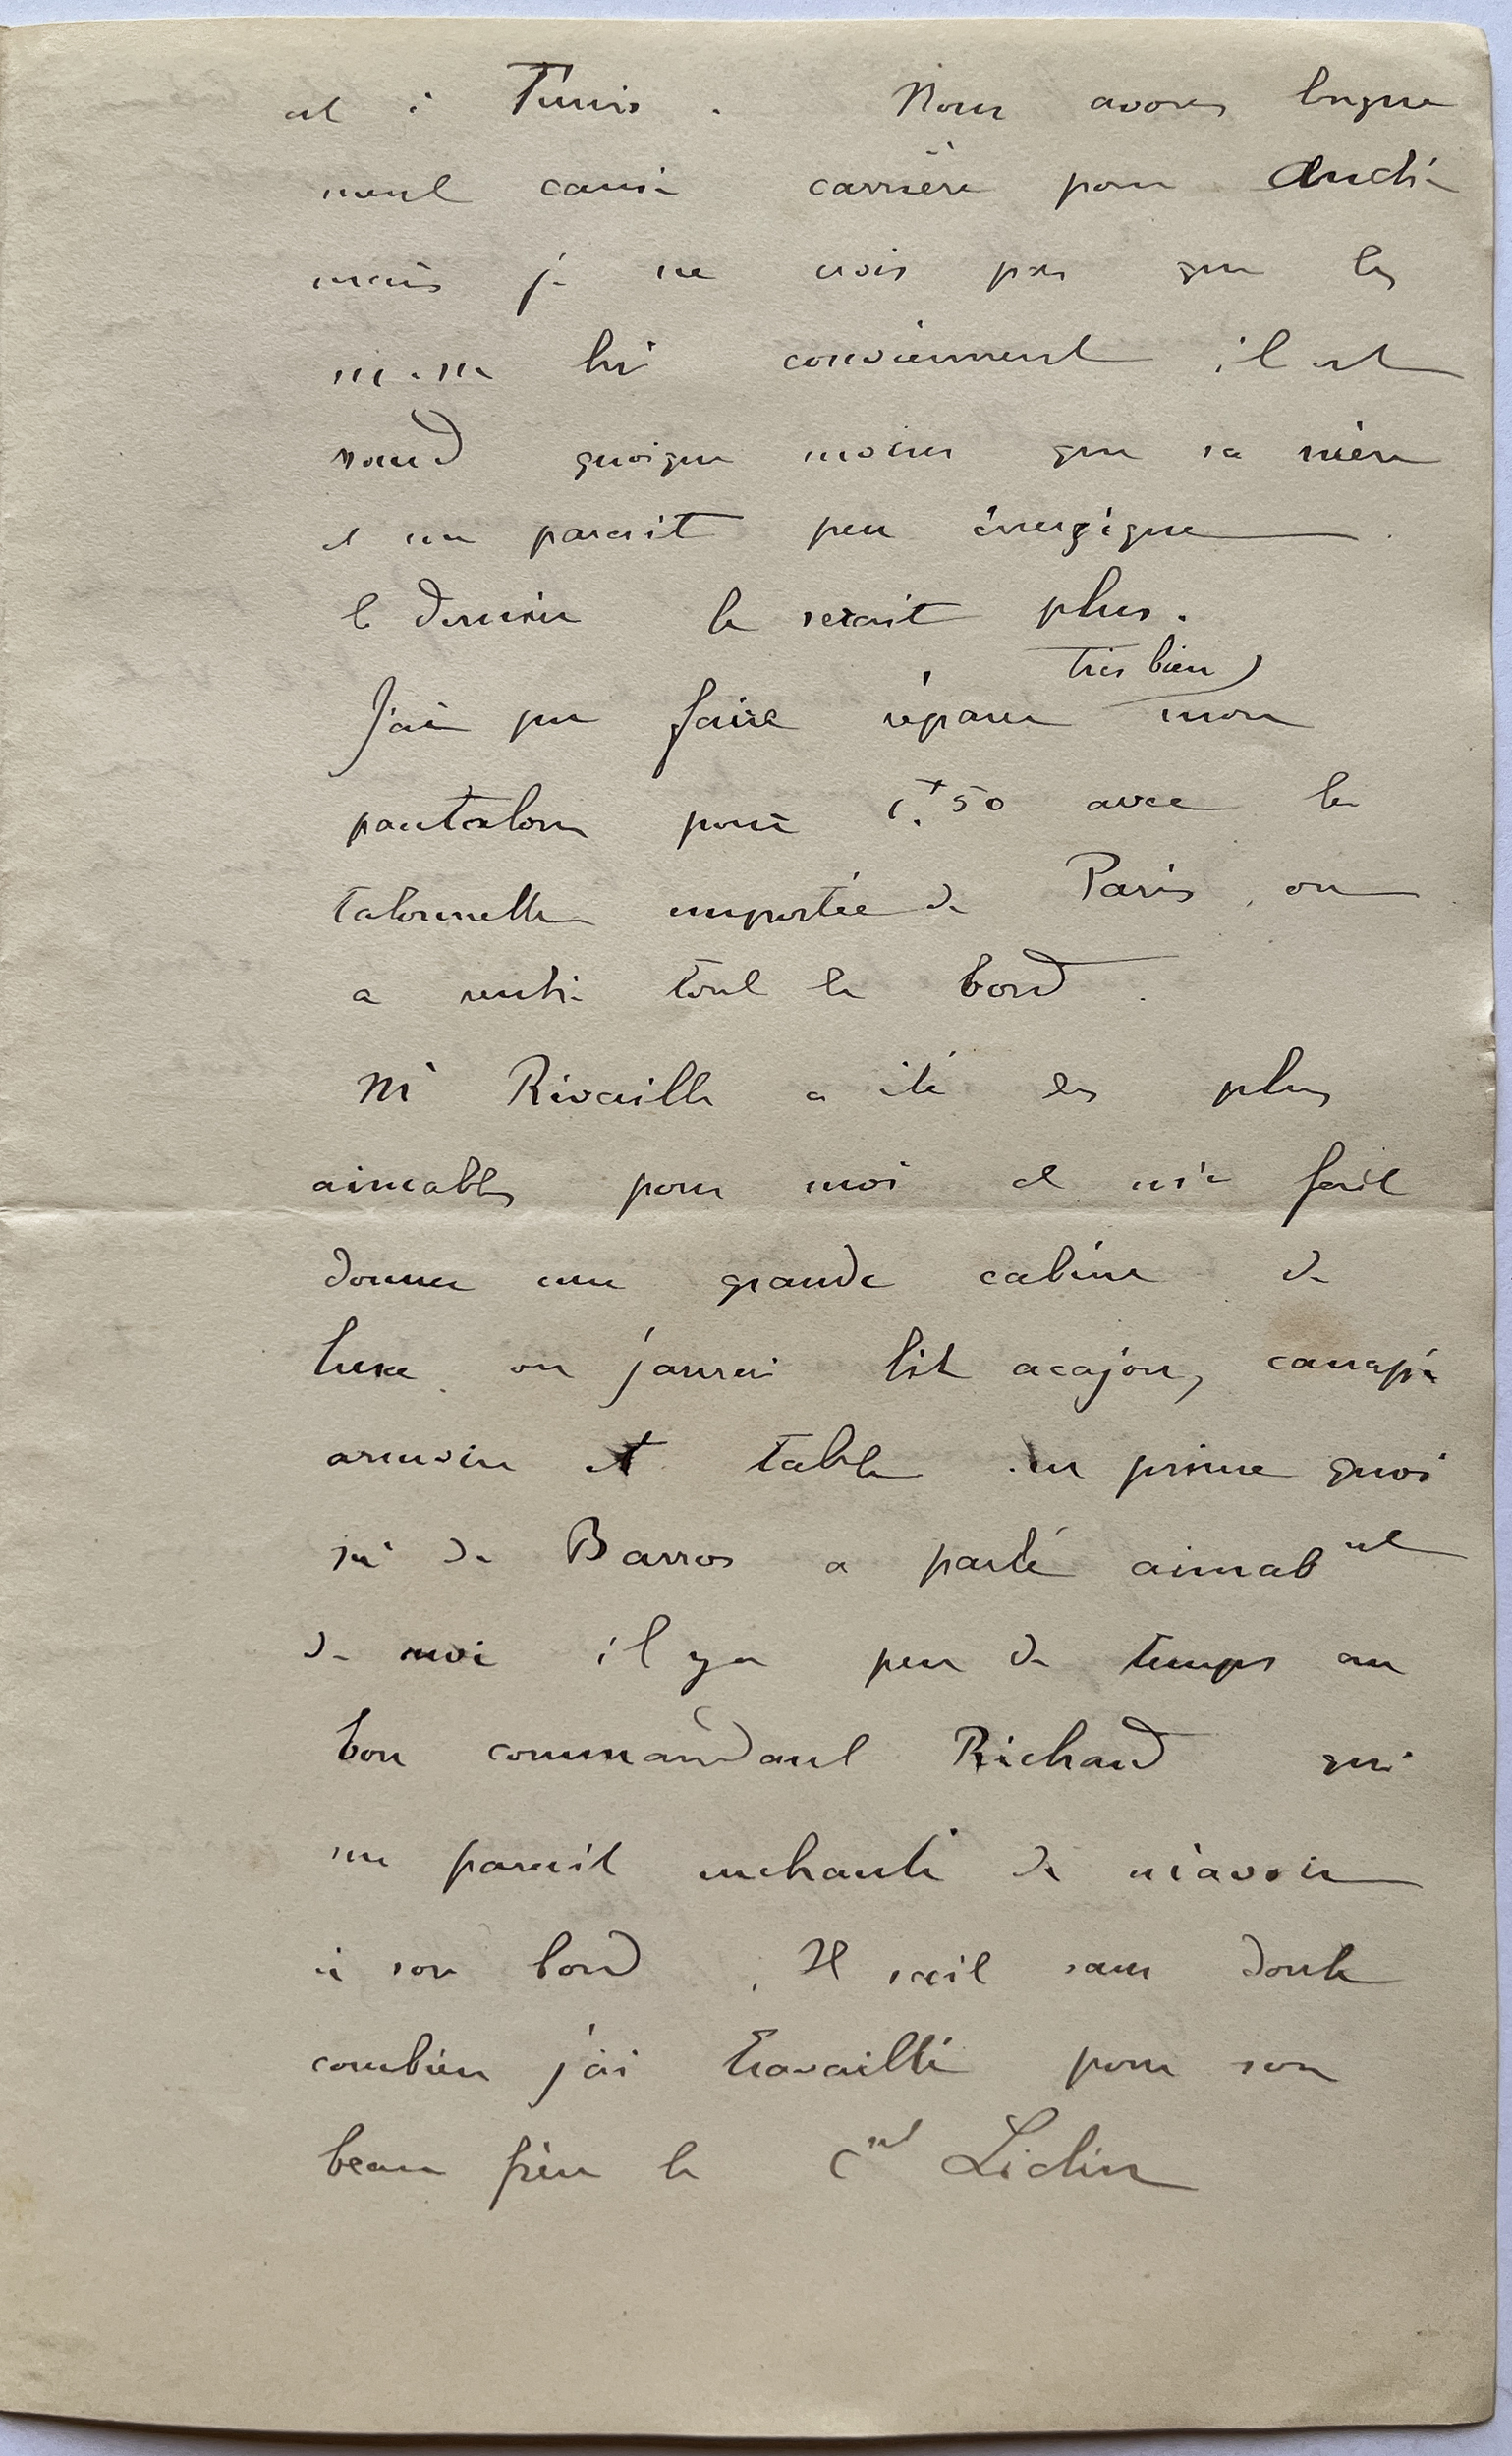 est à Tunis. Nous avons longue
ment causé carrière pour André
mais je ne crois pas que les
lui conviennent il est
sourd quoique moins que sa mère
et me parait peu énergique
le dernier le serait plus.
très bien
J'ai pu faire réparer mon
pantalon pour 50 avec la
talonnette emportée de Paris, on
a rentré tout le bord.
Mr Rivaille a été des plus
aimables pour moi et m'a fait
donner une grande cabine de
luxe où j'aurai lit acajou, canapé
armoire et table en prime quoi
Mr de Barros a parlé aimabnt
de moi il y a peu de temps au
bon commandant Richard qui
me parait enchanté de m'avoir
à son bord. Il sait sans doute
combien j'ai travaillé pour son
beau frère le Cnel